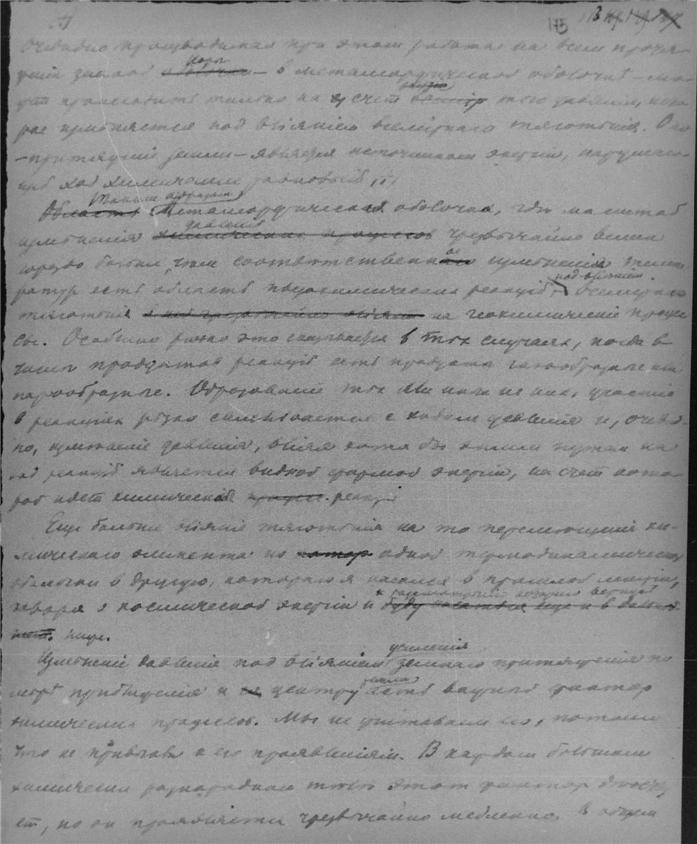 115
Очевидно производимая при этом работа на всем протя-
жении земной коры в металлургической оболочке мо-
жет происходить только на счет того давления, кото-
рое изменяется под влиянием всемирного тяготения. Оно
притяжение земли является источником энергии, нарушаю-
щей химические равновесия
Таким образом
Метаморфическая оболочка, где масштаб
изменения давления чрезвычайно велик
гораздо больше, чем соответственные изменения темпе-
ратур есть область реакций под влиянием всемирного
тяготения на геохимические процес-
сы. Особенно резко это сказывается в тех случаях, когда в
числе продуктов реакций есть продукты газообразные или
парообразные. Образование тех или иных из них, участие
в реакциях резко связывается с ходом давления и, очевид-
но, изменение давления, влияя хотя бы этим путем на
ход реакций является видной формой энергии, на счет кото-
рой идет химическая реакция
Еще больше влияние тяготения на то перемещение хи-
мического элемента из одной термодинамической
оболочки в другую, которого я касался в прошлой лекции,
говоря о космической энергии и к
ниже.
Изменение давления под влиянием усиления земного притяжения по
мере приближения к центру земли есть важный фактор
химических процессов. Мы не учитываем его, потому
что не привыкли к его проявлениям. В каждом большом
химически разнородном теле этот фактор действу-
ет, но он проявляется чрезвычайно медленно. В общем